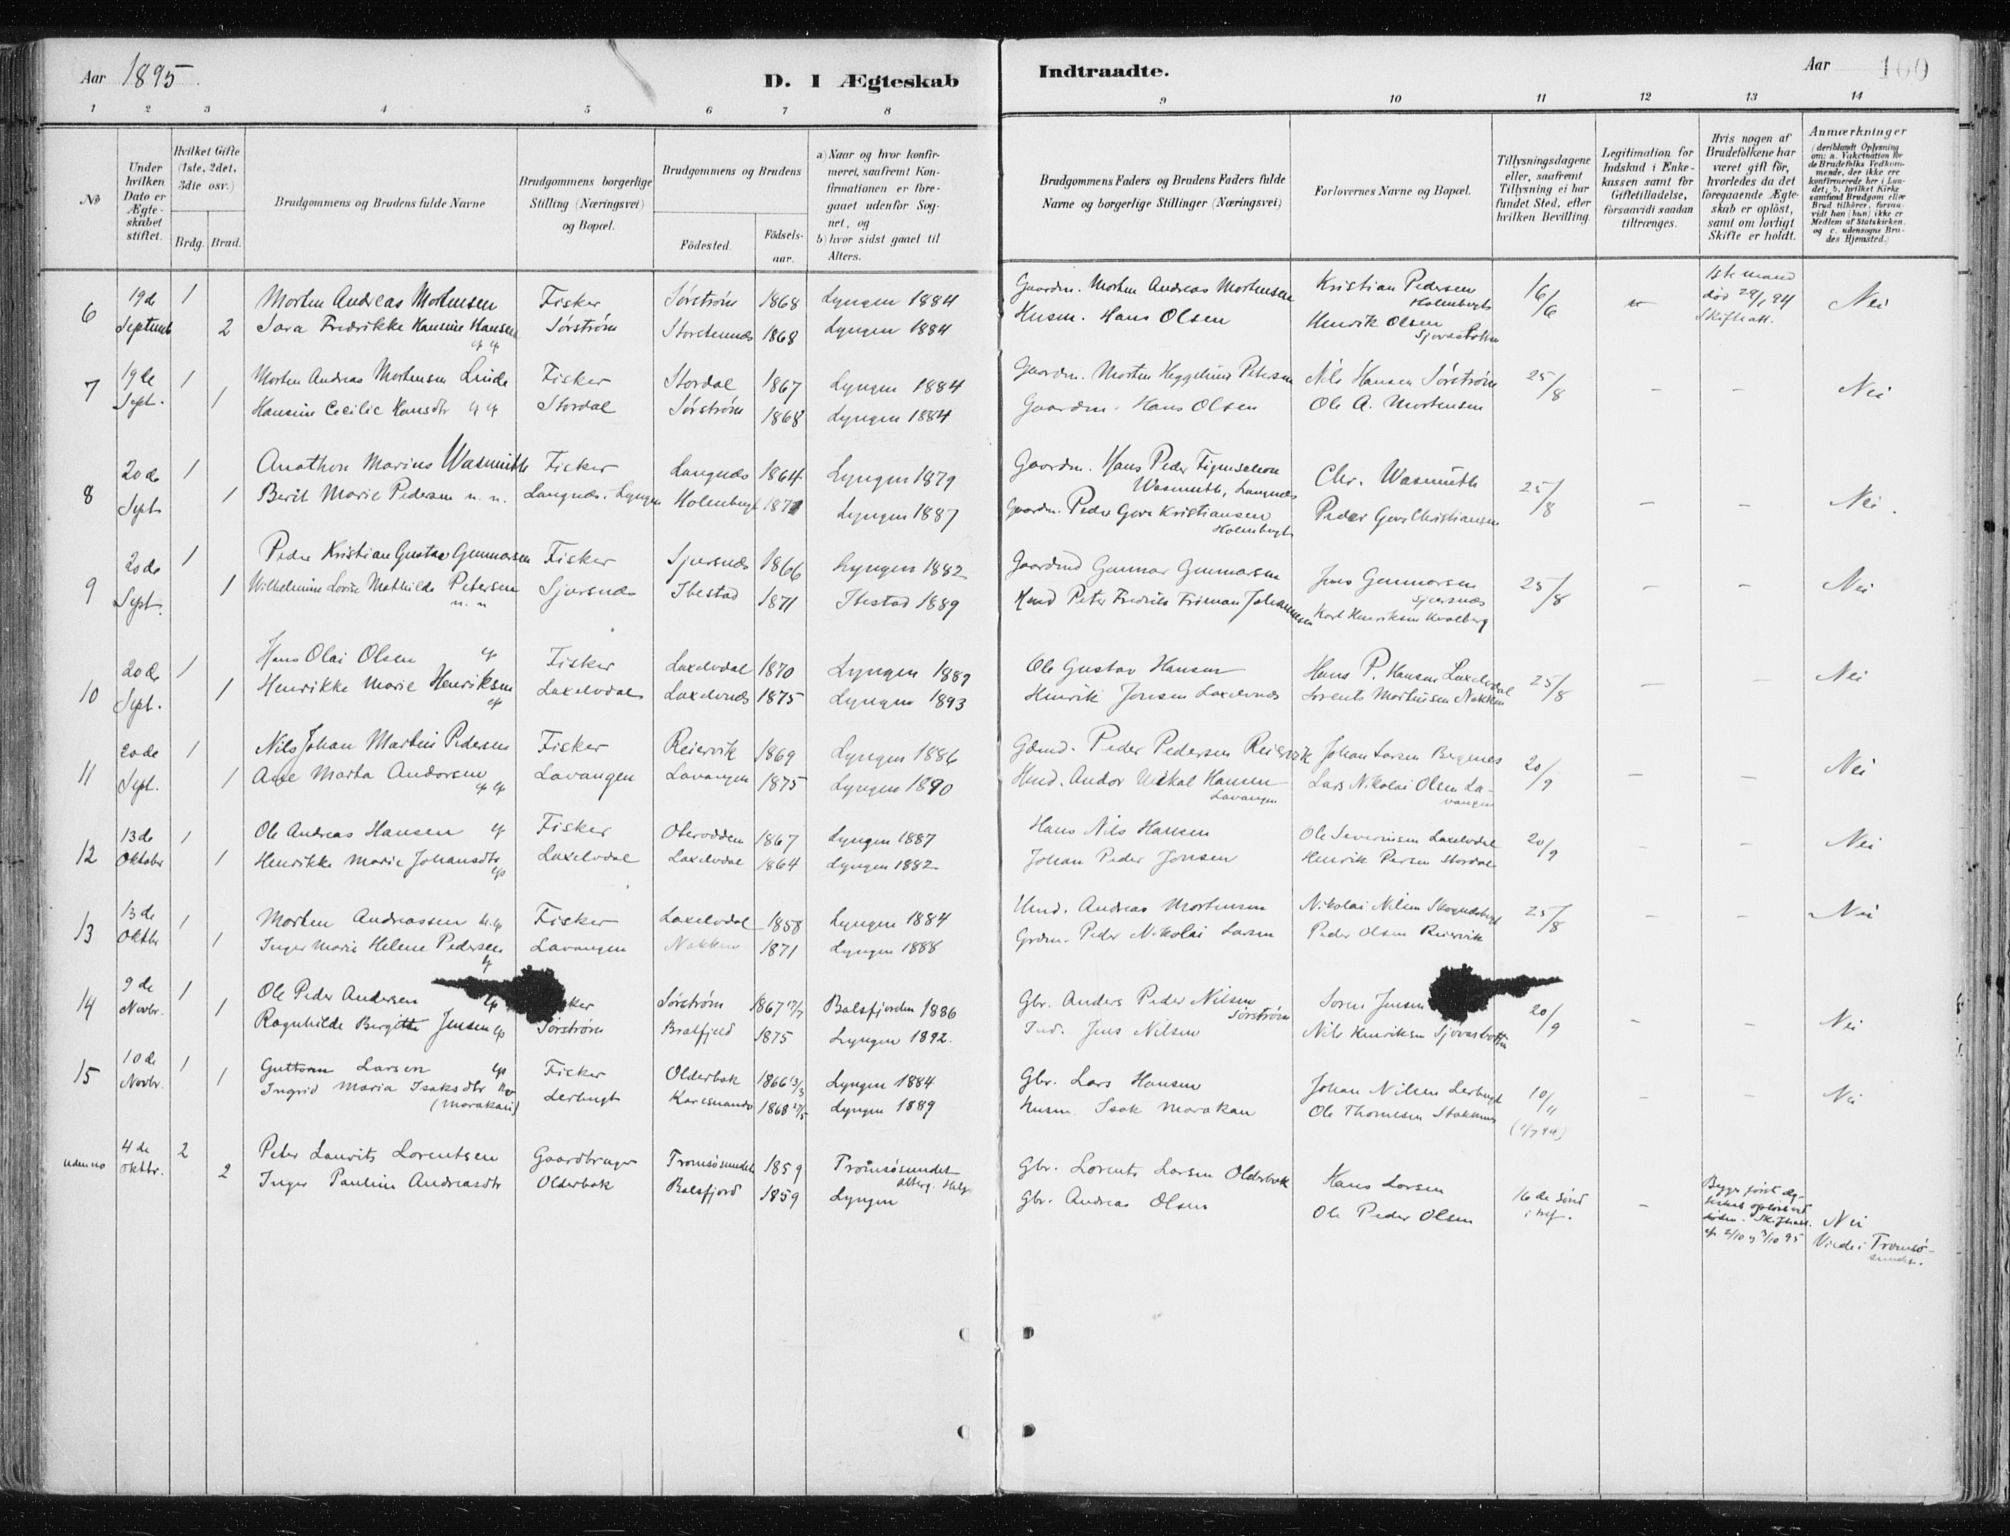 Aar 1895
D. I Ægteskab
Indtraadte.
Aar
100
1 2 3 4 5 6 7 8 9 10 11 12 13 14
No
Under hvilken Dato er Ægteskabet stiftet.
Hvilket Gifte (1ste, 2det, 3die osv.)
Brdg. Brud.
Brudgommens og Brudens fulde Navne
Brudgommens borgerlige Stilling (Næringsvei) og Bopæl.
Brudgommens og Brudens
Födested.
Födselsaar.
a) Naar og hvor konfirmeret, saafremt Konfirmationen er foregaaet udenfor Sognet, og
b) hvor sidst gaaet til Alters.
Brudgommens Faders og Brudens Faders fulde Navne og borgerlige Stillinger (Næringsvei)
Forlovernes Navne og Bopæl.
Tillysningsdagene eller, saafremt Tillysning ei har fundet Sted, efter hvilken Bevilling.
Legitimation for Indskud i Enkekassen samt for Giftetilladelse, forsaavidt saadan tiltrænges.
Hvis nogen af Brudefolkene har været gift för, hvorledes da det foregaaende Ægteskab er oplöst, samt om lovligt Skifte er holdt.
Anmærkninger (deriblandt Oplysning om: a. Vakcination for de Brudefolks Vedkommende, der ikke ere konfirmerede her i Landet; b. hvilket Kirkesamfund Brudgom eller Brud tilhörer, forsaavidt han (hun) ikke er Medlem af Statskirken, og c. udensogns Brudes Hjemsted.)
6 19de 1 Morten Andreas Mortensen Fisker Sørstrøm 1868 Lyngen 1884 Gaardm. Morten Andreas Mortensen Kristian Pedersen Holmbugt 16/6 1ste mand død 29/1 94 Nei
Septemb 2 Sara Fredrikke Hansine Hansen Sørstrøm Storstennæs 1868 Lyngen 1884 Husm. Hans Olsen Henrik Olsen
7 19de 1 Morten Andreas Mortensen Linde Fisker Stordal 1867 Lyngen 1884 Gaardm. Morten Heggelund Petersen Nils Hansen Sørstrøm 25/8 - - Nei
Sept. 1 Hansine Cecilie Hansdtr Stordal Sørstrøm 1868 Lyngen 1884 Gaardm. Hans Olsen Ole A. Mortensen
8 20de 1 Anathon Marius Wasmuth Fisker Langnæs 1864 Lyngen 1879 Gaardm. Hans Peder Wasmuth, Langnæs Chr. Wasmuth 25/8 - - Nei.
Sept 1 Berit Marie Pedersen Langnæs. Lyngen Holmbugt 1871 Lyngen 1887 Gaardm. Peder Gova Kristiansen Holmbugt Peder Gova Christiansen
9 20de 1 Peder Kristian Gustav Gunnarsen Fisker Sjursnæs 1866 Lyngen 1882 Gaardmd Gunnar Gunnarsen Jens Gunnarsen Sjursnæs 25/8 - - Nei
Sept. 1 Wilhelmine Lovise Mathilde Petersen Sjursnæs Ibestad 1871 Ibestad 1889 Peter Fredrik Johannesen Karl Henriksen Kvalberg
10 20de 1 Hans Olai Olsen Fisker Laxelvdal 1870 Lyngen 1887 Ole Gustav Hansen Hans P. Hansen Laxelvdal 25/8 - - Nei
Sept. 1 Henrikke Marie Henriksen Laxelvdal Laxelvnæs 1875 Lyngen 1893 Henrik Jensen Laxelvnæs Lorents Mortensen Nakken
11 20de 1 Nils Johan Martin Pedersen Fisker Reiervik 1869 Lyngen 1886 Gdmd. Peder Pedersen Reiervik Johan Larsen Bergenes 20/9 - - Nei
Sept. 1 Ane Marta Andorsen Lavangen Lavangen 1875 Lyngen 1890 Hmd. Andor Mikal Hansen Lavangen Lars Nikolai Olsen Lavangen
12 13de 1 Ole Andreas Hansen Fisker Oterodden 1867 Lyngen 1887 Hans Nils Hansen Ole Severinsen Laxelvdal 20/9 - - Nei
Oktober 1 Henrikke Marie Johansdtr Laxelvdal Laxelvdal 1864 Lyngen 1882 Johan Peder Jonsen Henrik Persen Stordal
13 13de 1 Morten Andreassen Fisker Laxelvdal 1858 Lyngen 1884 Hmd. Andreas Mortensen Nikolai Nilsen 25/8 - - Nei
Oktbr 1 Inger Marie Helene Pedersen Lavangen Nakken 1871 Lyngen 1888 Grdm. Peder Nikolai Larsen Peder Olsen Reiervik
14 9de 1 Ole Peder Andersen Sørstrøm 1867 17/7 Balsfjorden 1886 Gbr. Anders Peder Nilsen Sørstrøm Soren Jensen 20/9 - - Nei
Novbr. 1 Ragnhilde Bergitte Jensen Sørstrøm Bratfjeld 1875 Lyngen 1892. Ind. Jens Nilsen Nils Henriksen Sjøvasbotten
15 10de 1 Guttorm Larsen Fisker Olderbak 1866 13/3 Lyngen 1884 Gbr. Lars Hansen Johan Nilsen Lerbugt 10/11 - - Nei
Novbr. 1 Ingrid Maria Isaksdtr (Marakan) Lerbugt Karesuando 1868 27/5 Lyngen 1889 Husm. Isak Marakan Ole Thomesen Stokknes
uden no 4de 2 Peter Lauvits Lorentsen Gaardbruger Tromsøsundet 1859 Tromsøsundet Gbr. Lorents Larsen Olderbak Hans Larsen 16de Sønd - Nei
Oktbr. 2 Inger Pauline Andreasdtr Olderbak Balsfjord 1859 Lyngen Gbr. Andreas Olsen Ole Peder Olsen Viede i Tromsøsundet.